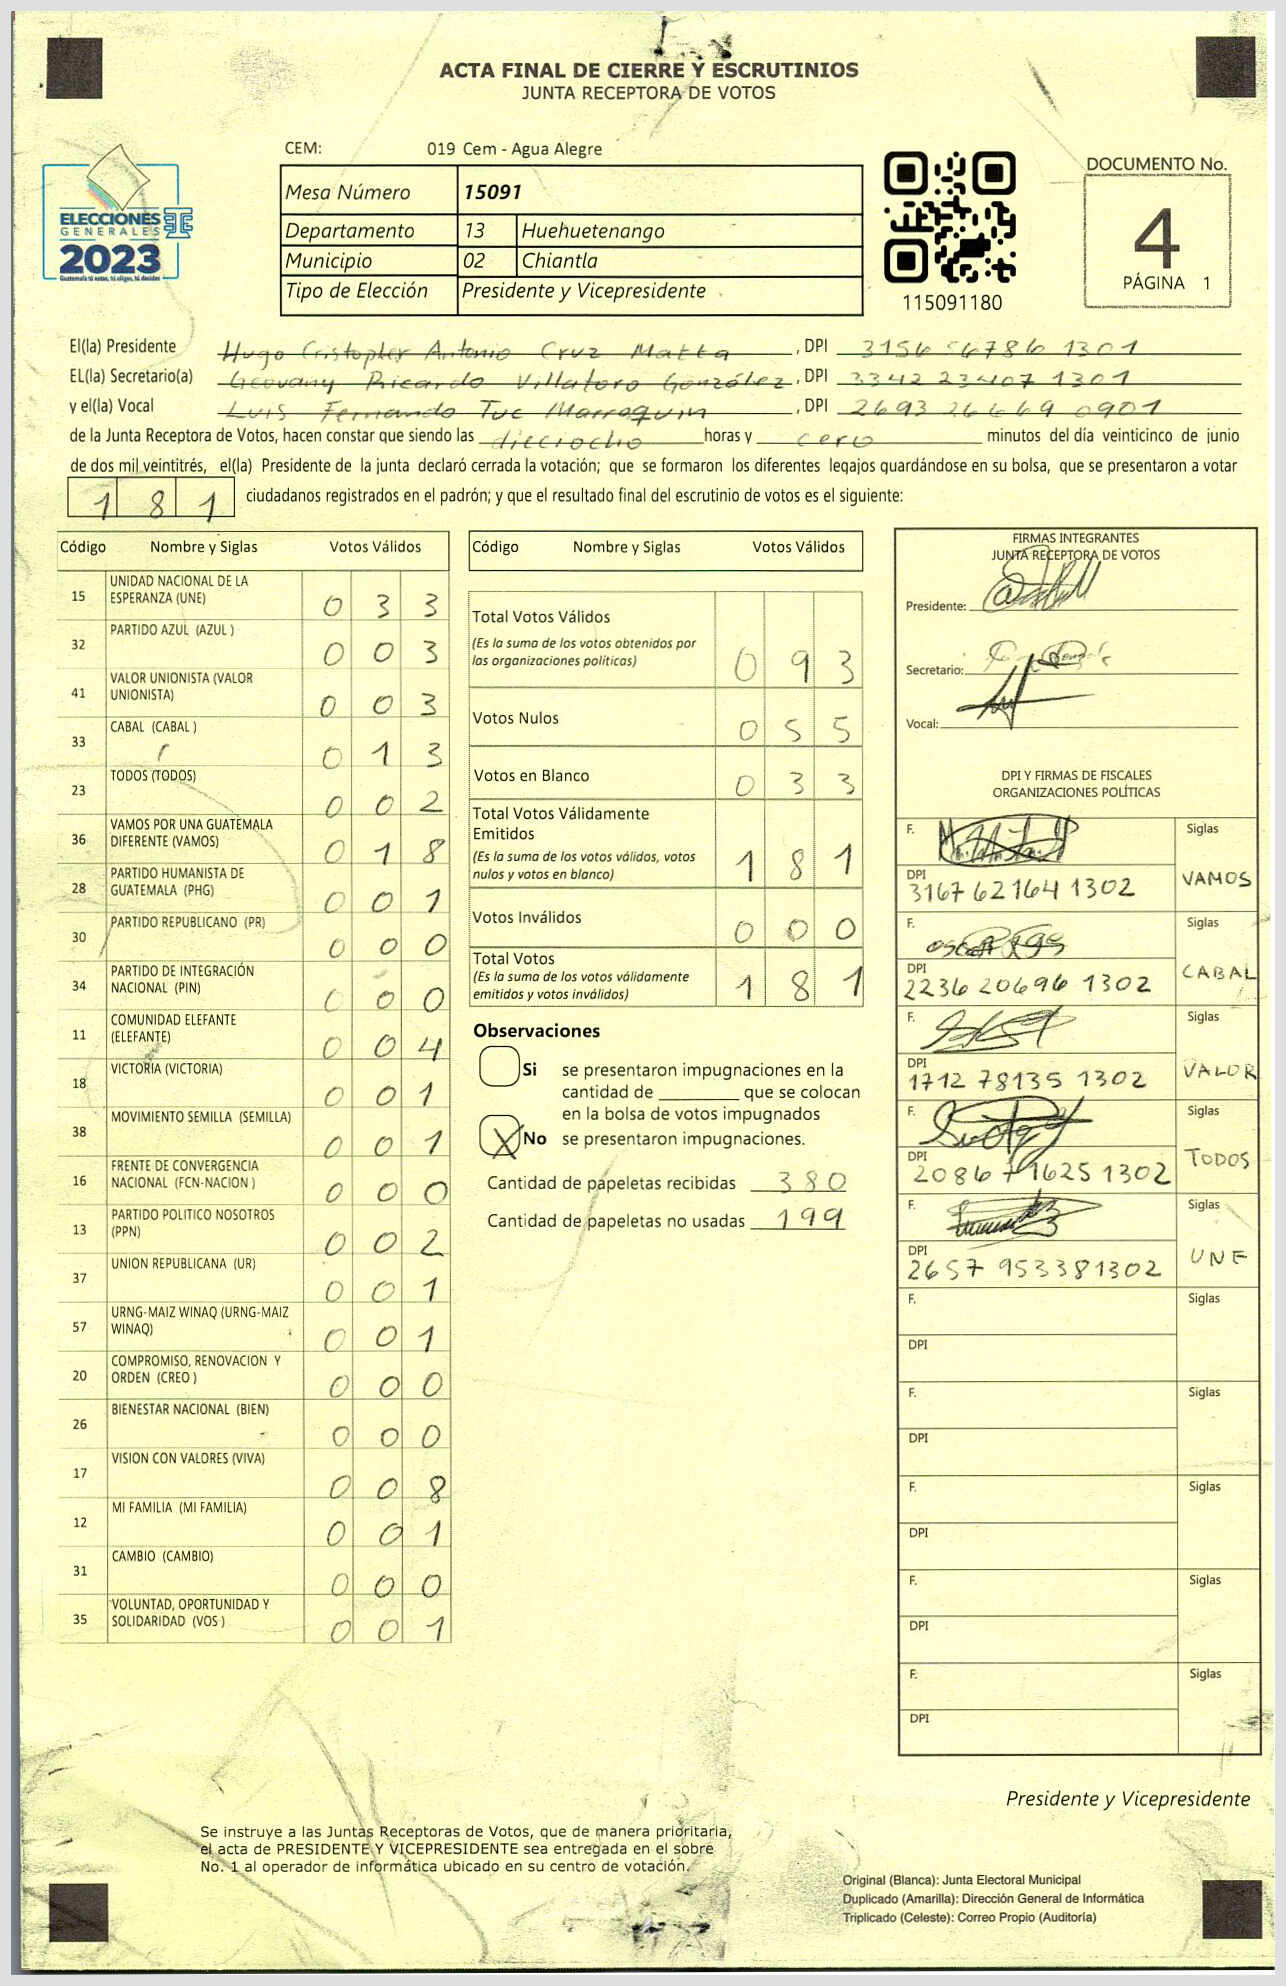 ACTA FINAL DE CIERRE Y ESCRUTINIOS
JUNTA RECEPTORA DE VOTOS
CEM: 019 Cem - Agua Alegre
ELECCIONES
GENERALES
2023
Guatemala tú votas, tú eliges, tú decides
Mesa Número 15091
Departamento 13 Huehuetenango
Municipio 02 Chiantla
Tipo de Elección Presidente y Vicepresidente
115091180
DOCUMENTO No.
4
PÁGINA 1
El(la) Presidente Hugo Cristopher Antonio Cruz Matta, DPI 3156 56786 1301
EL(la) Secretario(a) Geovany Ricardo Villatoro González, DPI 3342 23407 1301
y el(la) Vocal Luis Fernando Tuc Marroquin, DPI 2693 26669 0901
de la Junta Receptora de Votos, hacen constar que siendo las dieciocho horas y cero minutos del día veinticinco de junio
de dos mil veintitrés, el(la) Presidente de la junta declaró cerrada la votación; que se formaron los diferentes legajos quardándose en su bolsa, que se presentaron a votar
181 ciudadanos registrados en el padrón; y que el resultado final del escrutinio de votos es el siguiente:
Código Nombre y Siglas Votos Válidos
15 UNIDAD NACIONAL DE LA ESPERANZA (UNE) 0 3 3
32 PARTIDO AZUL (AZUL ) 0 0 3
41 VALOR UNIONISTA (VALOR UNIONISTA) 0 0 3
33 CABAL (CABAL ) 0 1 3
23 TODOS (TODOS) 0 0 2
36 VAMOS POR UNA GUATEMALA DIFERENTE (VAMOS) 0 1 8
28 PARTIDO HUMANISTA DE GUATEMALA (PHG) 0 0 1
30 PARTIDO REPUBLICANO (PR) 0 0 0
34 PARTIDO DE INTEGRACIÓN NACIONAL (PIN) 0 0 0
11 COMUNIDAD ELEFANTE (ELEFANTE) 0 0 4
18 VICTORIA (VICTORIA) 0 0 1
38 MOVIMIENTO SEMILLA (SEMILLA) 0 0 1
16 FRENTE DE CONVERGENCIA NACIONAL (FCN-NACION ) 0 0 0
13 PARTIDO POLITICO NOSOTROS (PPN) 0 0 2
37 UNION REPUBLICANA (UR) 0 0 1
57 URNG-MAIZ WINAQ (URNG-MAIZ WINAQ) 0 0 1
20 COMPROMISO, RENOVACION Y ORDEN (CREO ) 0 0 0
26 BIENESTAR NACIONAL (BIEN) 0 0 0
17 VISION CON VALORES (VIVA) 0 0 8
12 MI FAMILIA (MI FAMILIA) 0 0 1
31 CAMBIO (CAMBIO) 0 0 0
35 VOLUNTAD, OPORTUNIDAD Y SOLIDARIDAD (VOS ) 0 0 1
Código Nombre y Siglas Votos Válidos
Total Votos Válidos 0 9 3
(Es la suma de los votos obtenidos por
las organizaciones políticas)
Votos Nulos 0 5 5
Votos en Blanco 0 3 3
Total Votos Válidamente
Emitidos 1 8 1
(Es la suma de los votos válidos, votos
nulos y votos en blanco)
Votos Inválidos 0 0 0
Total Votos 1 8 1
(Es la suma de los votos válidamente
emitidos y votos inválidos)
Observaciones
Si se presentaron impugnaciones en la
cantidad de ________ que se colocan
en la bolsa de votos impugnados
X No se presentaron impugnaciones.
Cantidad de papeletas recibidas 380
Cantidad de papeletas no usadas 199
FIRMAS INTEGRANTES
JUNTA RECEPTORA DE VOTOS
Presidente:
Secretario:
Vocal:
DPI Y FIRMAS DE FISCALES
ORGANIZACIONES POLÍTICAS
F. Siglas
DPI 3167 62164 1302 VAMOS
F. Siglas
DPI 2236 20696 1302 CABAL
F. Siglas
DPI 1712 78135 1302 VALOR
F. Siglas
DPI 2086 71625 1302 TODOS
F. Siglas
DPI 2657 95338 1302 UNE
F. Siglas
DPI
F. Siglas
DPI
F. Siglas
DPI
F. Siglas
DPI
F. Siglas
DPI
Presidente y Vicepresidente
Se instruye a las Juntas Receptoras de Votos, que de manera prioritaria,
el acta de PRESIDENTE Y VICEPRESIDENTE sea entregada en el sobre
No. 1 al operador de informática ubicado en su centro de votación.
Original (Blanca): Junta Electoral Municipal
Duplicado (Amarilla): Dirección General de Informática
Triplicado (Celeste): Correo Propio (Auditoría)